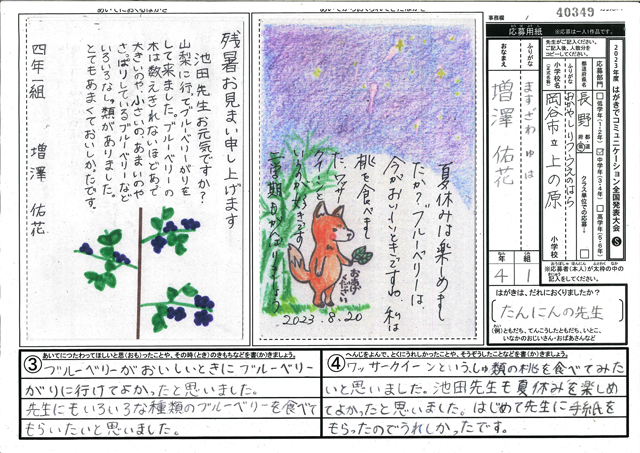 あいてにおくるはがき
残暑お見まい申し上げます
池田先生お元気ですか?
山梨に行って、ブルーベリーがりを
して来ました。ブルーベリーの
木は数えきれないほどあって
大きいのや、小さいの、あまいのや
さっぱりしているブルーベリーなど
いろいろなしゅ類がありました。
とてもあまくておいしかったです。
四年一組 増澤 佑花
夏休みは楽しめまし
たか?ブルーベリーは
今がおいしいときですね。私は
桃を食べまし
た。ワッサー
クイーンと
いうのが好きです
二学期もがんばりましょう
お裾分け
ください
2023.8.20
事務欄
40349
応募用紙
※応募は一人1作品です。
2023年度 はがきでコミュニケーション全国発表大会 S
先生がご記入ください。
ご記入後、人数分を
コピーしてください。
応募部門
低学年(1・2年)
中学年(3・4年)
高学年(5・6年)
都道府県名
長野
都道府県
クラス単位での応募
ふりがな
おかやしりつうえのはら
小学校名
(正式名称)
岡谷市立 上の原 小学校
※応募者(本人)が太枠の中の
記入をしてください。
ふりがな
ますざわ ゆは
おなまえ
増澤 佑花
年 組
4 1
はがきは、だれにおくりましたか?
たんにんの先生
(例)ともだち、てんこうしたともだち、いとこ、
いなかのおじいさん・おばあさんなど
③ あいてにつたわってほしいと思(おも)ったことや、その時(とき)のきもちなどを書(か)きましょう。
ブルーベリーがおいしいときにブルーベリー
がりに行けてよかったと思いました。
先生にもいろいろな種類のブルーベリーを食べて
もらいたいと思いました。
④ へんじをよんで、とくにうれしかったことや、そうぞうしたことなどを書(か)きましょう。
ワッサークイーンというしゅ類の桃を食べてみた
いと思いました。池田先生も夏休みを楽しめ
てよかったと思いました。はじめて先生に手紙を
もらったのでうれしかったです。